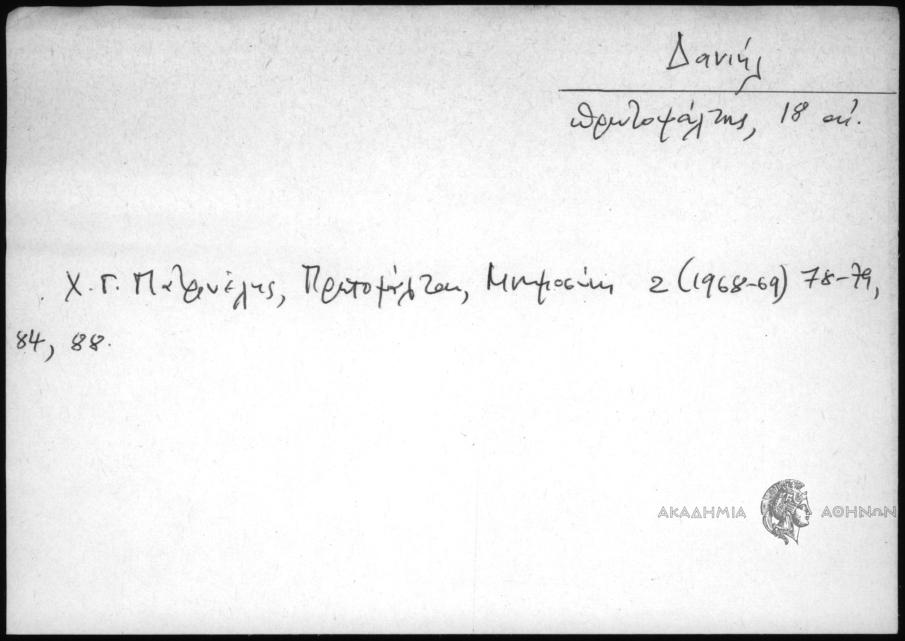 Δανιήλ
πρωτοψάλτης, 18 αἰ.
Χ. Γ. Πατρινέλης, Πρωτοψάλται, Μνημοσύνη 2 (1968-69) 78-79,
84, 88.
ΑΚΑΔΗΜΙΑ ΑΘΗΝΩΝ